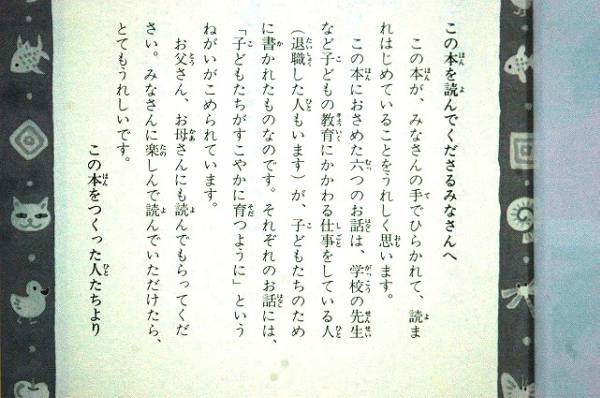 この本を読んでくださるみなさんへ
この本が、みなさんの手でひらかれて、読ま
れはじめていることをうれしく思います。
この本におさめた六つのお話は、学校の先生
など子どもの教育にかかわる仕事をしている人
(退職した人もいます)が、子どもたちのため
に書かれたものなのです。それぞれのお話には、
「子どもたちがすこやかに育つように」という
ねがいがこめられています。
お父さん、お母さんにも読んでもらってくだ
さい。みなさんに楽しんで読んでいただけたら、
とてもうれしいです。
この本をつくった人たちより